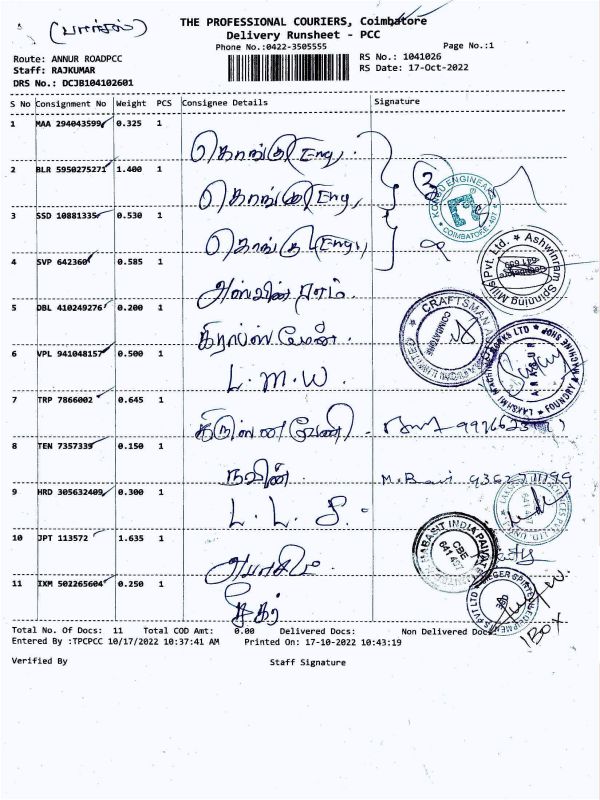 (பார்சல்)
THE PROFESSIONAL COURIERS, Coimbatore
Delivery Runsheet - PCC
Phone No.:0422-3505555
Page No.:1
Route: ANNUR ROADPCC
RS No.: 1041026
Staff: RAJKUMAR
RS Date: 17-Oct-2022
DRS No.: DCJB104102601
S No Consignment No Weight PCS Consignee Details Signature
1 MAA 294043599 0.325 1
கொங்கு Eng.
2 BLR 5950275271 1.400 1
கொங்கு Eng,
KONGU ENGINEER
COIMBATORE
3 SSD 10881335 0.530 1
கொங்கு (Eng,
4 SVP 642360 0.585 1
அஸ்வின் ராம்.
Ashwinram Spinning Mills Pvt. Ltd.
5 DBL 410249276 0.200 1
கிராப்ஸ்மேன்.
CRAFTSMAN
COIMBATORE
6 VPL 941048157 0.500 1
L. M. W.
LAKSHMI MACHINE WORKS LTD
FOUNDRY & MACHINE SHOP
ARASUR
7 TRP 7866002 0.645 1
8 TEN 7357339 0.150 1
நவின்
9 HRD 305632409 0.300 1
L. L. S.
10 JPT 113572 1.635 1
INDIA PRIVATE
CBE
11 IXM 502265604 0.250 1
சீகர்
BOX
Total No. Of Docs: 11 Total COD Amt: 0.00 Delivered Docs: Non Delivered Docs
Entered By :TPCPCC 10/17/2022 10:37:41 AM Printed On: 17-10-2022 10:43:19
Verified By Staff Signature